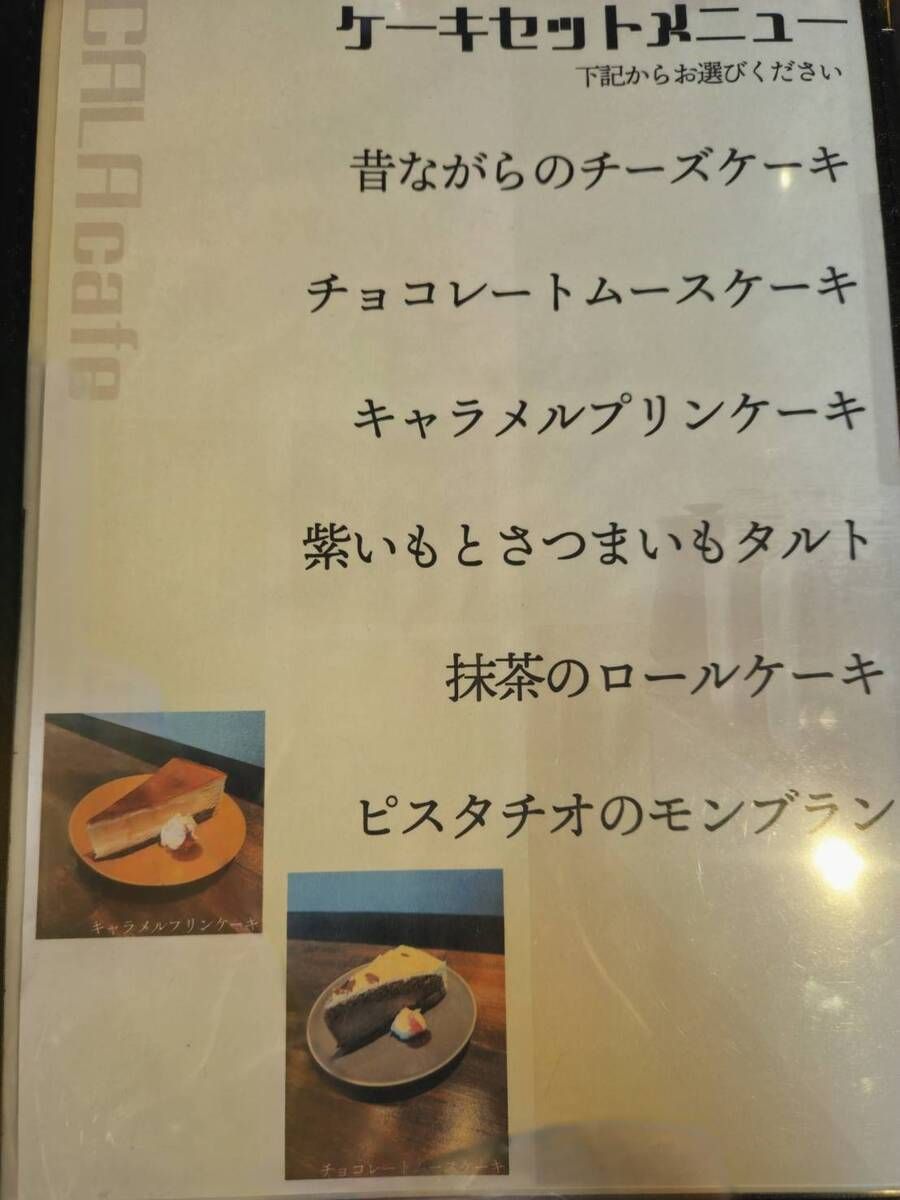 CALAcafe
ケーキセットメニュー
下記からお選びください
昔ながらのチーズケーキ
チョコレートムースケーキ
キャラメルプリンケーキ
紫いもとさつまいもタルト
抹茶のロールケーキ
ピスタチオのモンブラン
キャラメルプリンケーキ
チョコレートムースケーキ